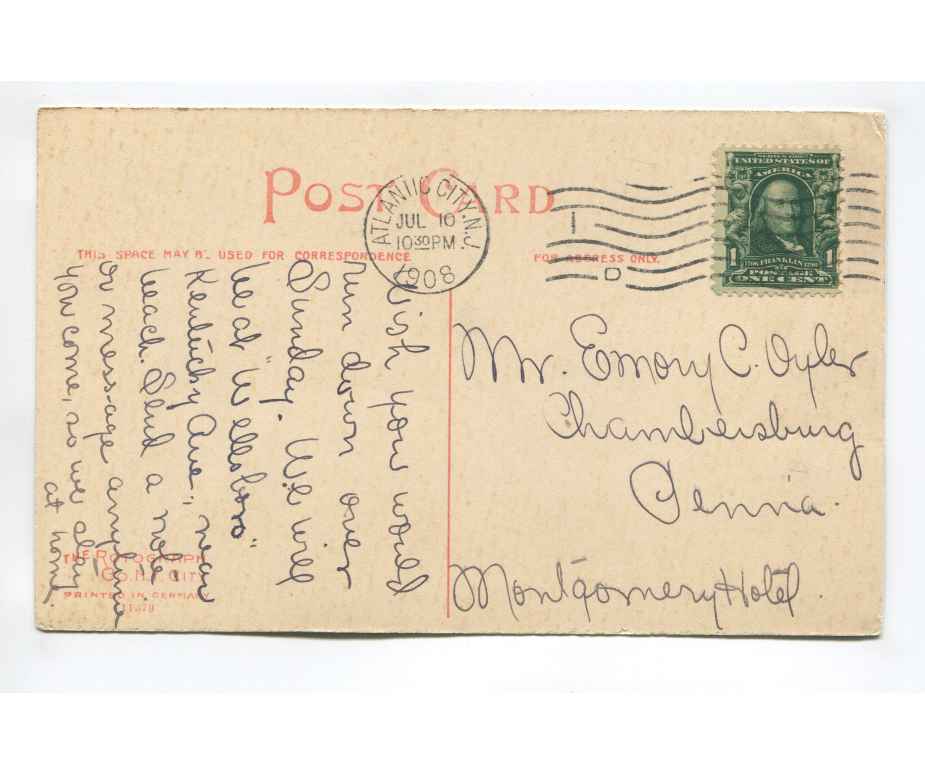 POST CARD
THIS SPACE MAY BE USED FOR CORRESPONDENCE
FOR ADDRESS ONLY.
ATLANTIC CITY, N.J.
JUL 10
10 30 PM
1908
1
D
SERIES 1902
UNITED STATES OF
AMERICA
1706 FRANKLIN 1790
POSTAGE
1 ONE CENT 1
Wish you would
run down over
Sunday. We will
be at "Wellsboro"
Kentucky Ave., near
beach. Send a note
or mess-age anytime
you come, so we stay
at home.
Mr. Emory C. Oyler
Chambersburg
Penna.
Montgomery Hotel.
THE ROTOGRAPH
CO. N.Y. CITY
PRINTED IN GERMANY